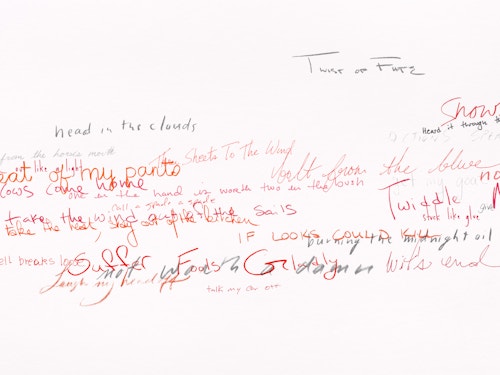 Twist of Fate
Snows
head in the clouds
Heard it through th
from the horse's mouth
Sheets To The Wind
bolt from the blue
eat of my pants
cows come home
one in the hand is worth two in the bush
Twiddle
call a spade a spade
stuck like glue
take the wind out of the sails
take the heat, stay out of the kitchen
IF LOOKS COULD KILL
burning the midnight oil
ell breaks loo
Suffer Fools Gladly
not worth a damn
wit's end
laugh my head off
talk my ear off